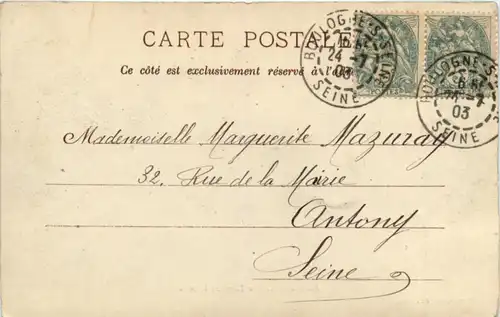 CARTE POSTALE
Ce côté est exclusivement réservé à l'
BOULOGNE-S-SEINE
24 -7
03
SEINE
BOULOGNE-S-
-7
03
SEINE
Mademoiselle Marguerite Mazuray
32, Rue de la Mairie
Antony
Seine